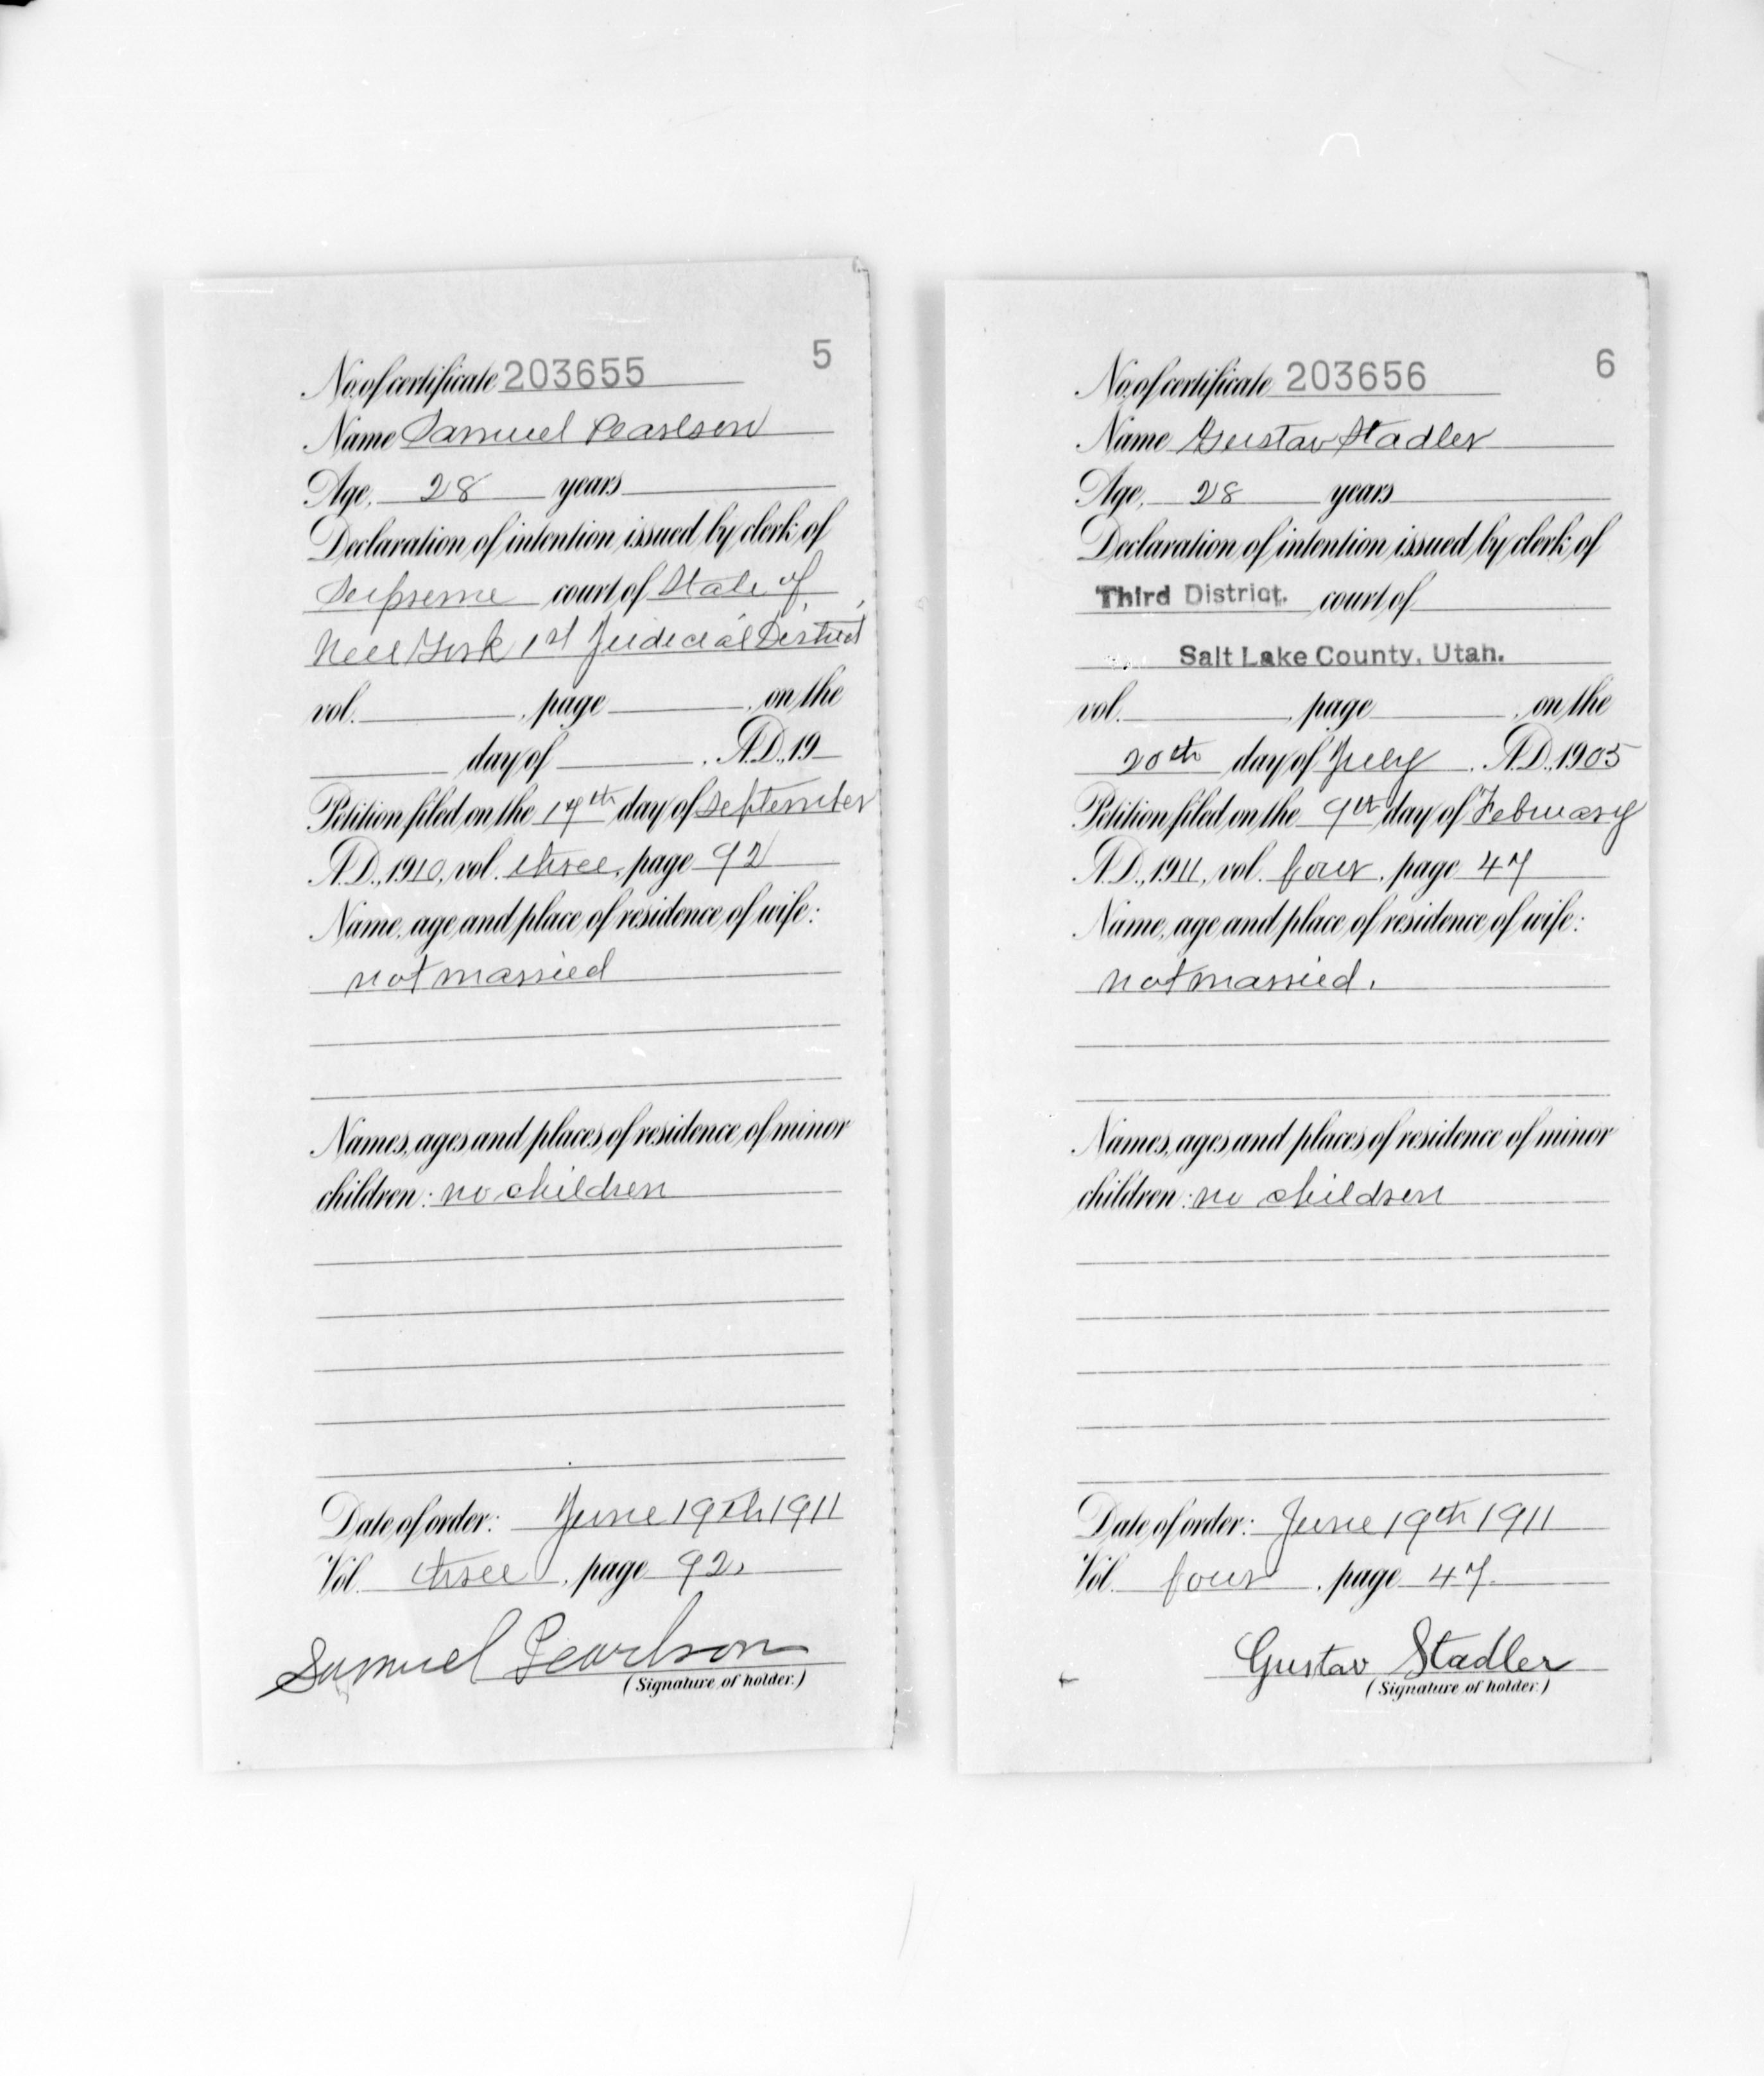 5
No. of certificate 203655
Name Samuel Pearlson
Age, 28 years
Declaration of intention issued by clerk of
Supreme court of State of
New York 1st Judicial District
vol. , page , on the
day of , A.D. 19
Petition filed on the 17th day of September
A.D. 1910, vol. three, page 92
Name, age and place of residence of wife:
not married
Names, ages and places of residence of minor
children: no children
Date of order: June 19th 1911
Vol. three, page 92.
Samuel Pearlson
(Signature of holder.)
6
No. of certificate 203656
Name Gustav Stadler
Age, 28 years
Declaration of intention issued by clerk of
Third District. court of
Salt Lake County, Utah.
vol. , page , on the
20th day of July , A.D. 1905
Petition filed on the 9th day of February
A.D. 1911, vol. four, page 47
Name, age and place of residence of wife:
not married.
Names, ages and places of residence of minor
children: no children
Date of order: June 19th 1911
Vol. four, page 47.
Gustav Stadler
(Signature of holder.)